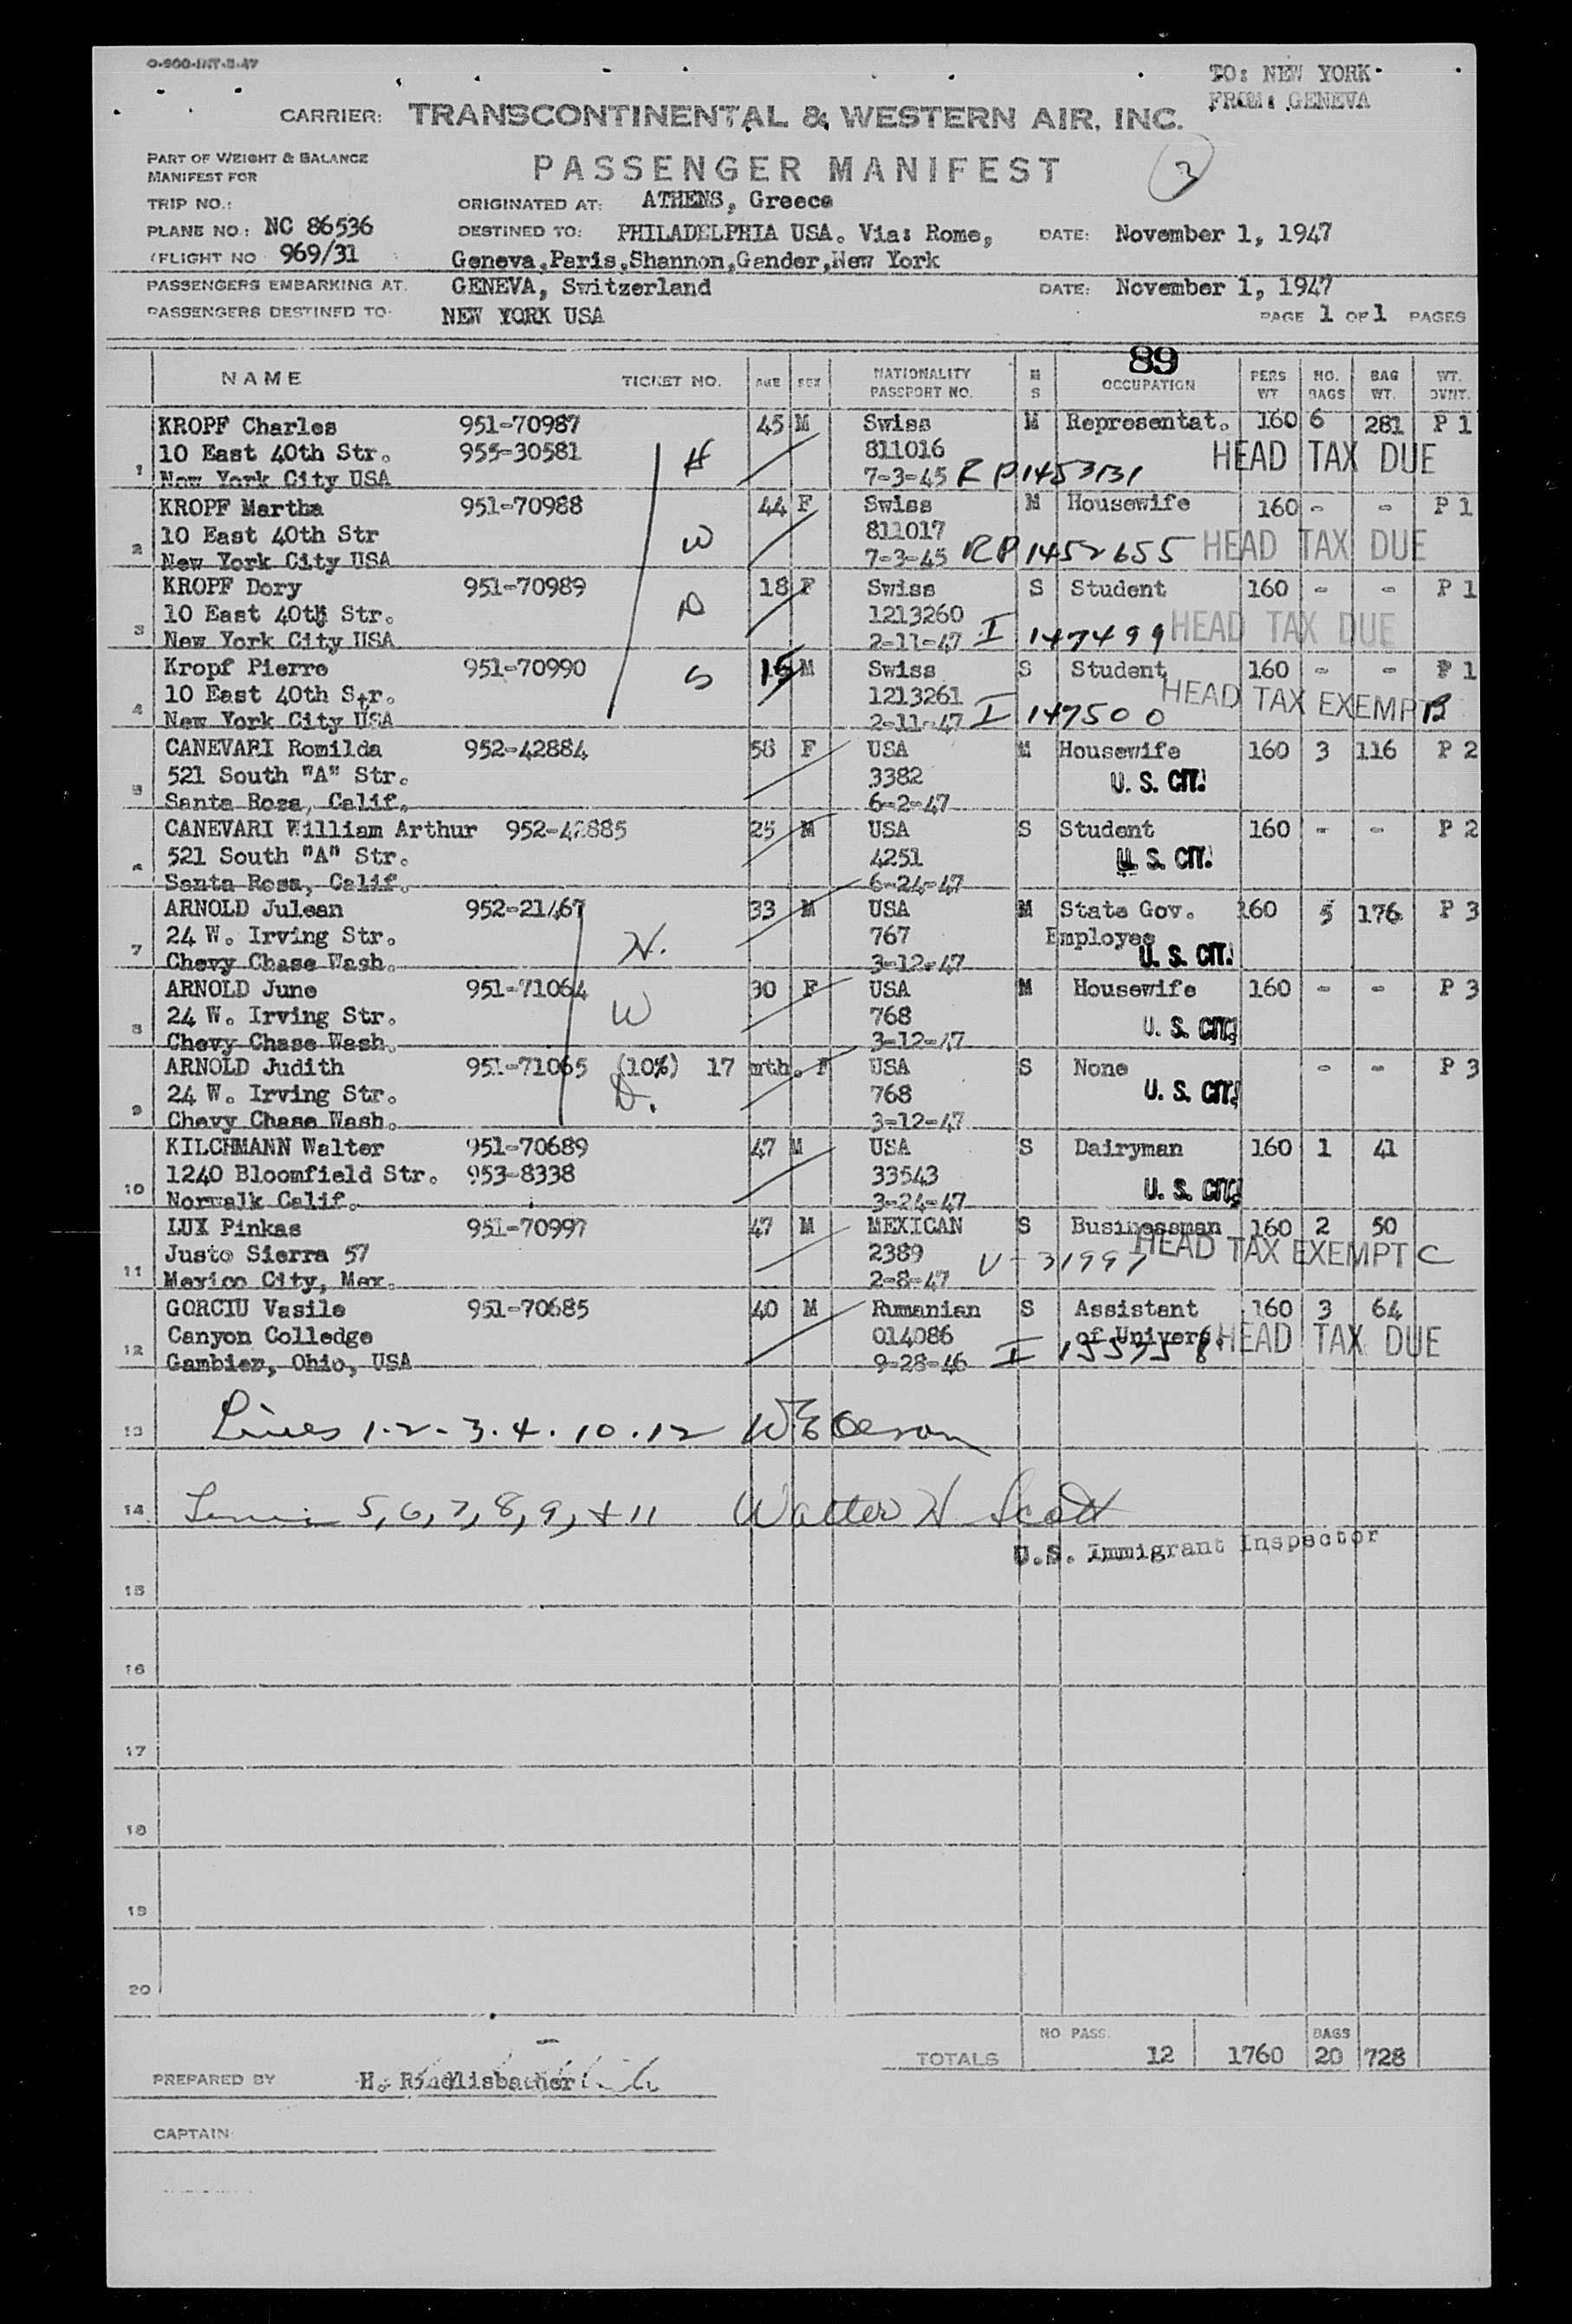 O-900-INT-8-47
TO: NEW YORK
FROM: GENEVA
CARRIER: TRANSCONTINENTAL & WESTERN AIR, INC.
PART OF WEIGHT & BALANCE
MANIFEST FOR
PASSENGER MANIFEST
3
TRIP NO.:
ORIGINATED AT: ATHENS, Greece
PLANE NO.: NC 86536
DESTINED TO: PHILADELPHIA USA. Via: Rome,
DATE: November 1, 1947
(FLIGHT NO 969/31
Geneva,Paris,Shannon,Gander,New York
PASSENGERS EMBARKING AT. GENEVA, Switzerland
DATE: November 1, 1947
PASSENGERS DESTINED TO: NEW YORK USA
PAGE 1 OF 1 PAGES
89
NAME TICKET NO. AGE SEX NATIONALITY PASSPORT NO. M S OCCUPATION PERS WT NO. BAGS BAG WT. WT. DVNT.
KROPF Charles 951-70987 45 M Swiss M Representat. 160 6 281 P 1
10 East 40th Str. 955-30581 H 811016 HEAD TAX DUE
1 New York City USA 7-3-45 RP1453131
KROPF Martha 951-70988 44 F Swiss M Housewife 160 - - P 1
2 10 East 40th Str W 811017
New York City USA 7-3-45 RP1452655 HEAD TAX DUE
KROPF Dory 951-70989 18 F Swiss S Student 160 - - P 1
10 East 40th Str. D 1213260
3 New York City USA 2-11-47 I 147499 HEAD TAX DUE
Kropf Pierre 951-70990 S 15 M Swiss S Student 160 - - P 1
10 East 40th Str. 1213261 HEAD TAX EXEMPT B
4 New York City USA 2-11-47 I 147500
CANEVARI Romilda 952-42884 58 F USA M Housewife 160 3 116 P 2
5 521 South "A" Str. 3382 U. S. CIT.
Santa Rosa, Calif. 6-2-47
CANEVARI William Arthur 952-42885 25 M USA S Student 160 - - P 2
6 521 South "A" Str. 4251 U. S. CIT.
Santa Rosa, Calif. 6-24-47
ARNOLD Julean 952-21467 33 M USA M State Gov. 160 5 176 P 3
7 24 W. Irving Str. H. 767 Employee
Chevy Chase Wash. 3-12-47 U. S. CIT.
ARNOLD June 951-71064 30 F USA M Housewife 160 - - P 3
8 24 W. Irving Str. W 768 U. S. CIT.
Chevy Chase Wash. 3-12-47
ARNOLD Judith 951-71065 (10%) 17 mth. F USA S None - - P 3
24 W. Irving Str. D. 768 U. S. CIT.
9 Chevy Chase Wash. 3-12-47
KILCHMANN Walter 951-70689 47 M USA S Dairyman 160 1 41
1240 Bloomfield Str. 953-8338 33543
10 Norwalk Calif. 3-24-47 U. S. CIT.
LUX Pinkas 951-70997 47 M MEXICAN S Businessman 160 2 50
Justo Sierra 57 2389 V-31997 HEAD TAX EXEMPT C
11 Mexico City, Mex. 2-8-47
GORCIU Vasile 951-70685 40 M Rumanian S Assistant 160 3 64
Canyon Colledge 014086 of Univers. HEAD TAX DUE
12 Gambier, Ohio, USA 9-28-46 I
13 Lines 1-2-3.4.10.12 W E Oleson
14 5, 6, 7, 8, 9, + 11 Walter H Scott
U.S. Immigrant Inspector
15
16
17
18
19
20
TOTALS NO PASS. 12 1760 BAGS 20 728
PREPARED BY H. Rindlisbacher
CAPTAIN: